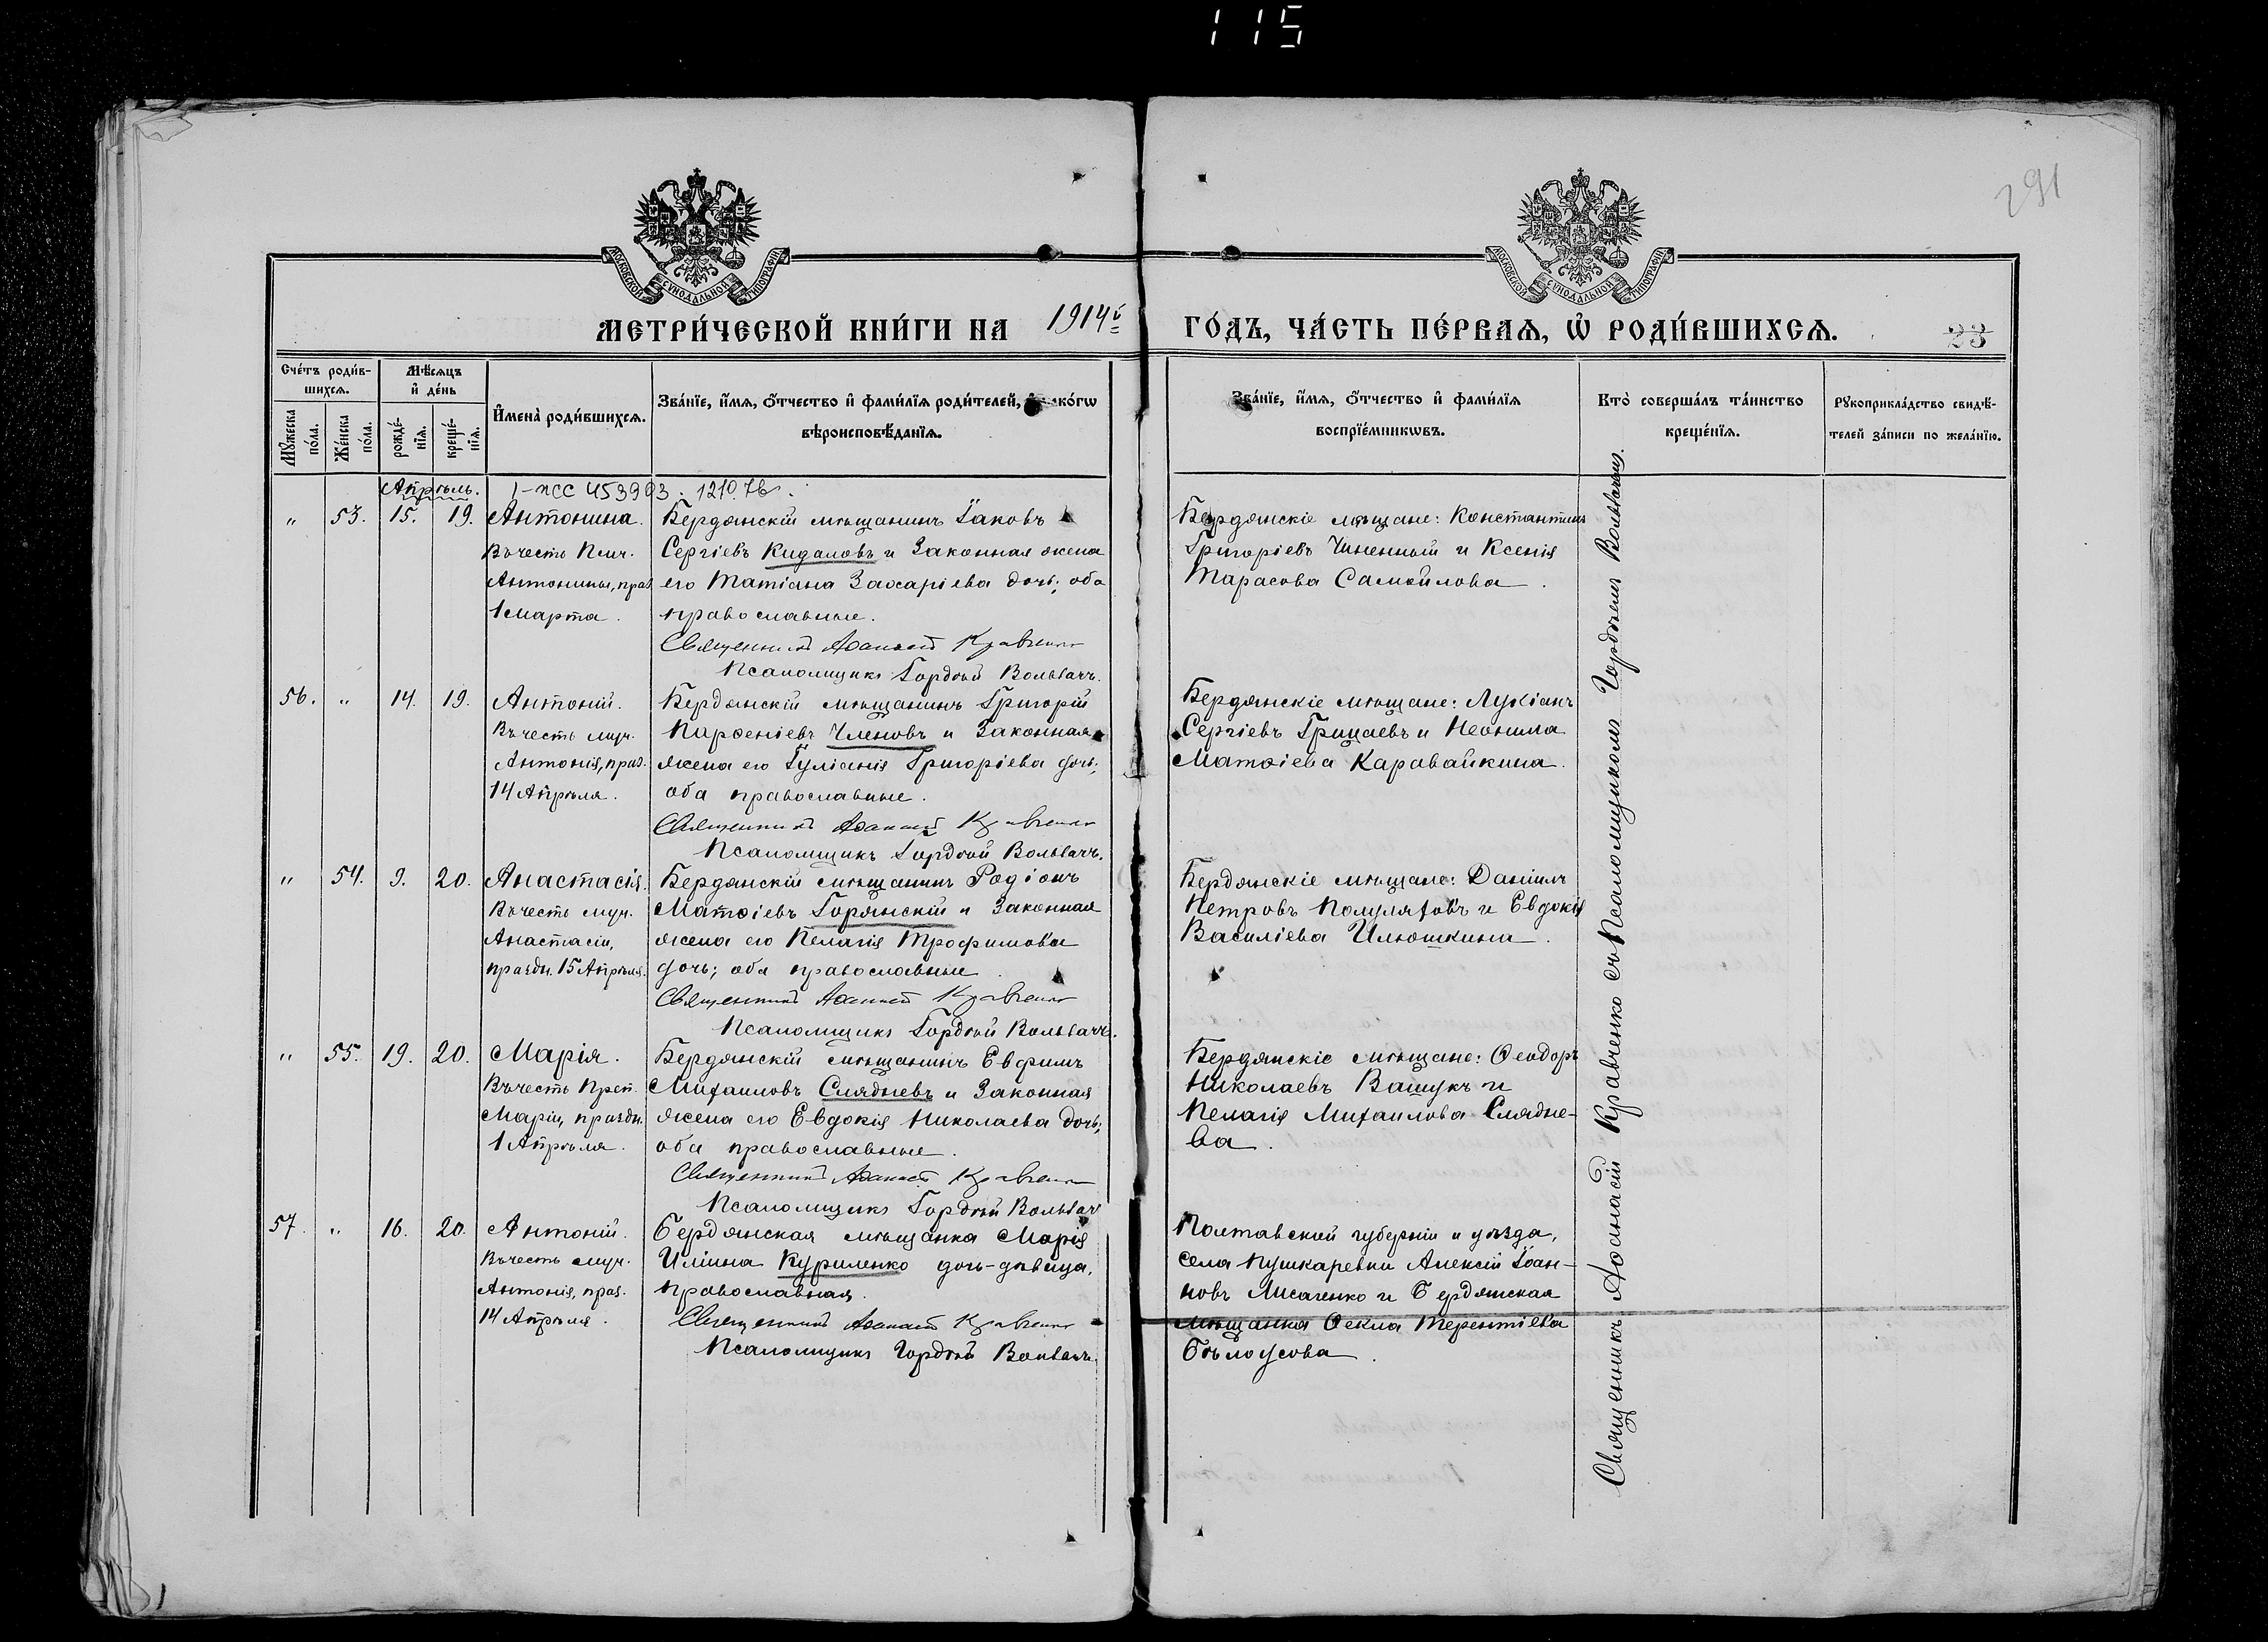 115
291
МОСКОВСКОЙ СѴНОДАЛЬНОЙ ТИПОГРАФІИ
МОСКОВСКОЙ СѴНОДАЛЬНОЙ ТИПОГРАФІИ
МЕТРИ́ЧЕСКОЙ КНИ́ГИ НА 1914й ГО́ДЪ, ЧА́СТЬ ПЕ́РВАѦ, Ѡ҆ РОДИ́ВШИХСѦ.
23
Сче́тъ роди́в-
шихсѧ.
Мꙋ́жеска по́ла.
Же́нска по́ла.
Мѣ́сѧцъ
и҆ де́нь
рожде́-
нїѧ.
креще́-
нїѧ.
И҆мена̀ роди́вшихсѧ.
Зва́нїе, и҆́мѧ, ѻ҆́тчество и҆ фами́лїѧ роди́телей, и҆ како́гѡ
вѣроисповѣ́данїѧ.
Зва́нїе, и҆́мѧ, ѻ҆́тчество и҆ фами́лїѧ
воспрїе́мникѡвъ.
Кто̀ соверша́лъ та́инство
креще́нїѧ.
Рꙋкоприкла́дство свидѣ́-
телей за́писи по жела́нїю.
Апрѣль.
53. 15. 19. Антонина.
Въ честь Пмч.
Антонины, праз.
1 Марта.
Бердянскій мѣщанинъ Іаковъ
Сергіевъ Кидаловъ и Законная жена
его Татіана Захаріева дочь; оба
православные.
Священникъ Аѳанасій Кравченко
Псаломщикъ Гордѣй Вольвачъ.
Бердянскіе мѣщане: Константинъ
Григоріевъ Чиненный и Ксенія
Тарасова Самойлова.
56. " 14. 19. Антоній.
Въ честь муч.
Антонія, праз.
14 Апрѣля.
Бердянскій мѣщанинъ Григорій
Парѳеніевъ Членовъ и Законная
жена его Іуліанія Григоріева дочь;
оба православные.
Священникъ Аѳанасій Кравченко
Псаломщикъ Гордѣй Вольвачъ.
Бердянскіе мѣщане: Лукіанъ
Сергіевъ Грицаевъ и Неонила
Матѳіева Каравайкина.
" 54. 9. 20. Анастасія.
Въ честь муч.
Анастасіи,
праздн. 15 Апрѣля.
Бердянскій мѣщанинъ Родіонъ
Матѳіевъ Горянскій и Законная
жена его Пелагія Трофимова
дочь; оба православные.
Священникъ Аѳанасій Кравченко
Псаломщикъ Гордѣй Вольвачъ.
Бердянскіе мѣщане: Даніилъ
Петровъ Полуляховъ и Евдокія
Василіева Илюшкина.
" 55. 19. 20. Марія.
Въ честь Преп.
Маріи, праздн.
1 Апрѣля.
Бердянскій мѣщанинъ Евфимъ
Михаиловъ Слядневъ и Законная
жена его Евдокія Николаева дочь;
оба православные.
Священникъ Аѳанасій Кравченко
Псаломщикъ Гордѣй Вольвачъ
Бердянскіе мѣщане: Ѳеодоръ
Николаевъ Ващукъ и
Пелагія Михаилова Слядне-
ва.
57. " 16. 20. Антоній.
Въ честь муч.
Антонія, праз.
14 Апрѣля.
Бердянская мѣщанка Марія
Иліина Куриленко дочь-дѣвица,
православная.
Священникъ Аѳанасій Кравченко
Псаломщикъ Гордѣй Вольвачъ.
Полтавской губерніи и уѣзда,
села Пушкаревки Алексій Іоан-
новъ Лисаченко и Бердянская
мѣщанка Ѳекла Терентіева
Бѣлоусова.
Священникъ Аѳанасій Кравченко съ Псаломщикомъ Гордѣемъ Вольвачемъ.